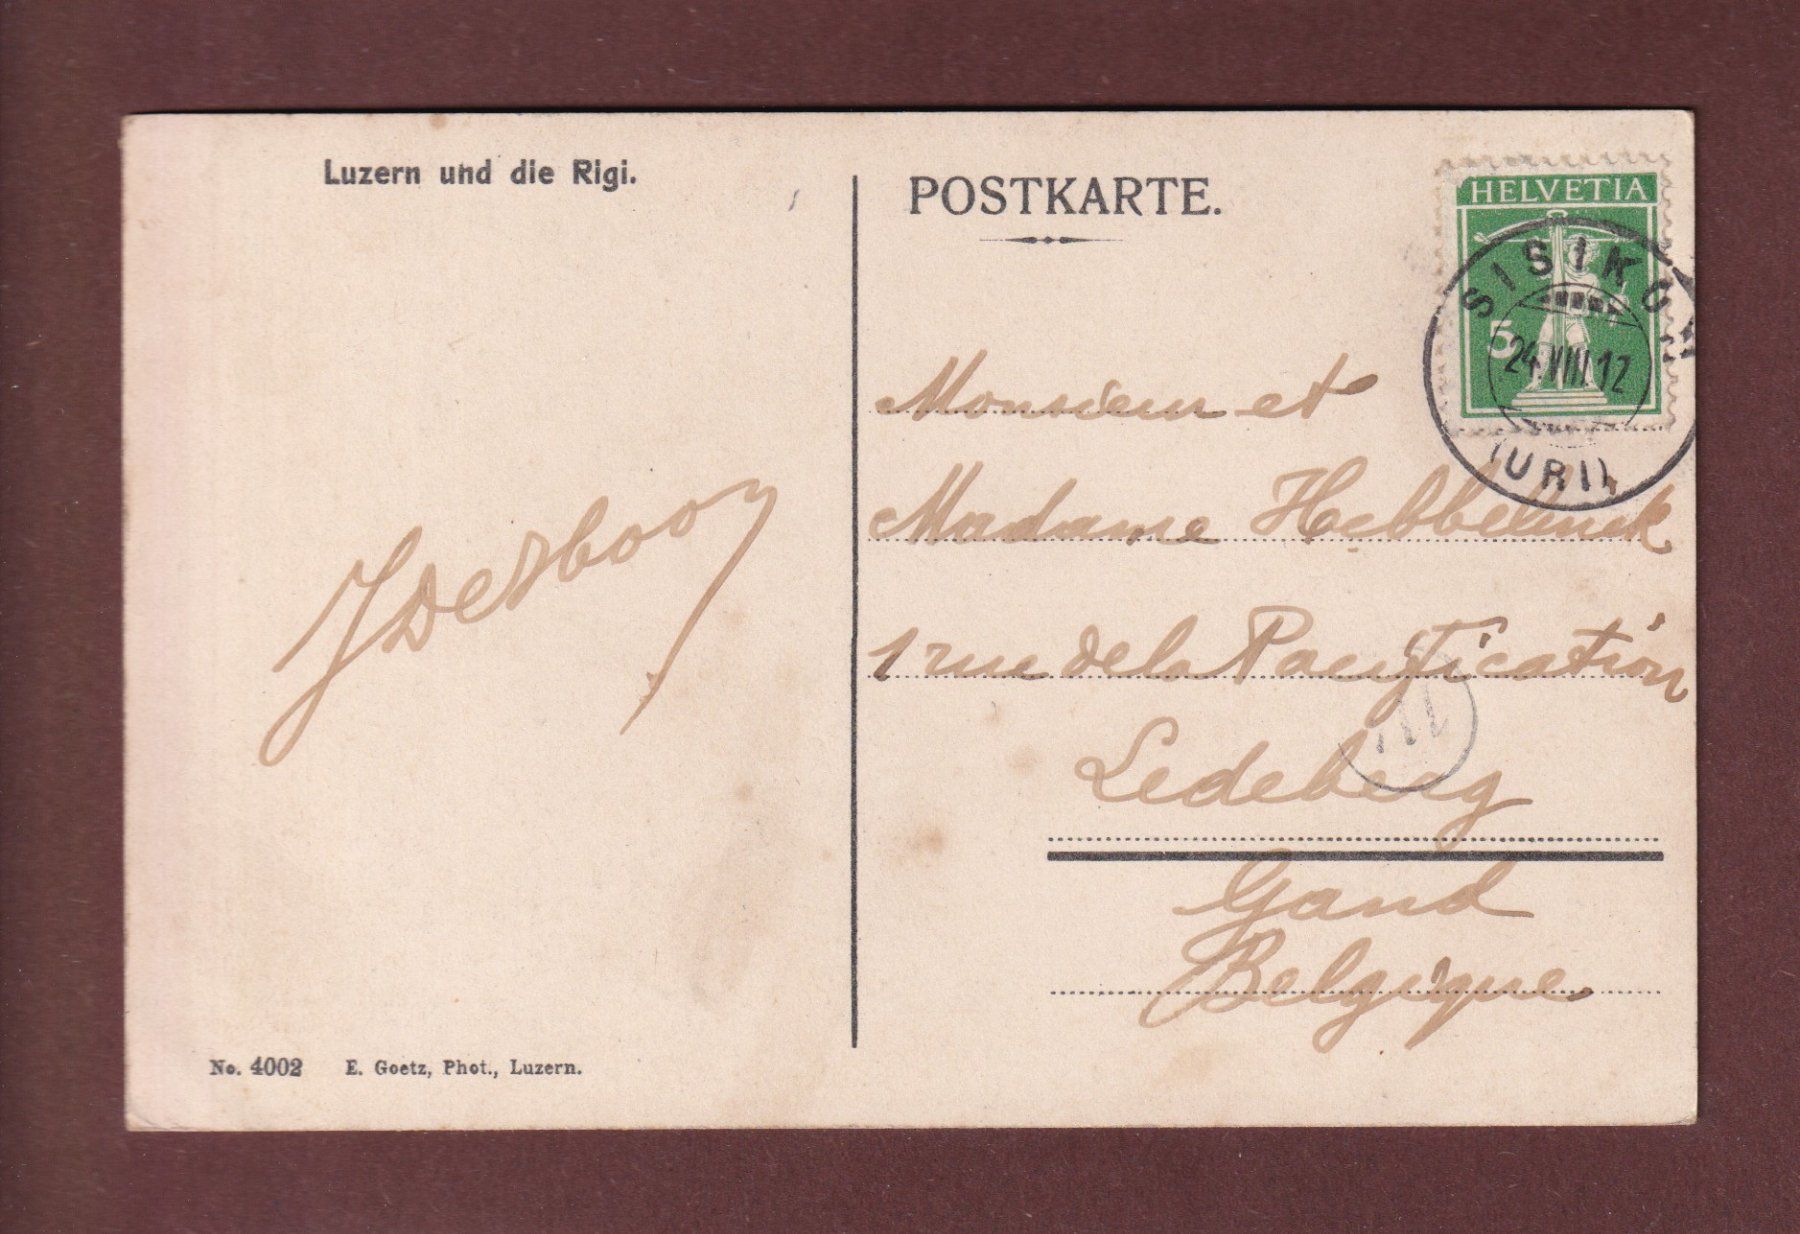 Luzern und die Rigi.
POSTKARTE.
HELVETIA
5
SISIKON
24.VIII.12
(URI)
Monsieur et
Madame Hebbelinck
1 rue de la Pacification
Ledeberg
Gand
Belgique
JDerbooy
No. 4002 E. Goetz, Phot., Luzern.